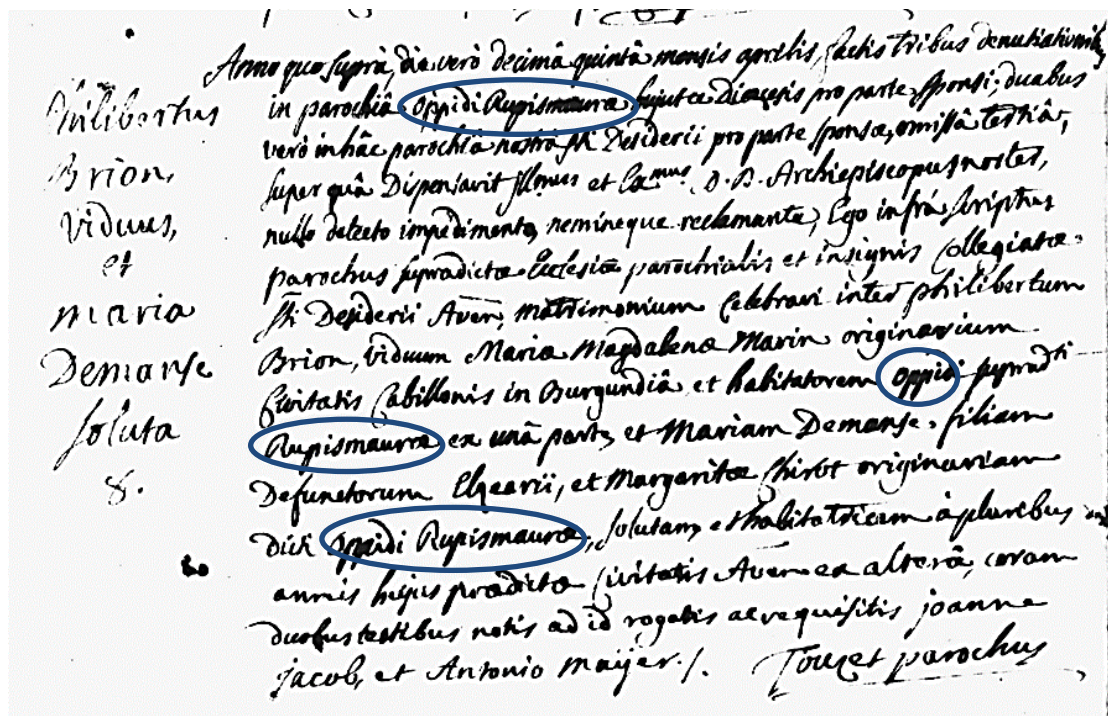 Anno quo supra, die vero decimâ quintâ mensis aprilis, factis tribus denutiationib9
Philibertus
in parochiâ oppidi Rupismauræ hujuTce Diœcesis pro parte sponsi, duabus
vero in hâc parochiâ nostrâ Sti Desiderii pro parte sponsæ, omissâ tertiâ,
Brion,
super quâ Dispensavit Illmus et Exmus D.D. Archiepiscopus noster,
viduus,
nullo detecto impedimento, nemineque reclamante, Ego infrà scriptus
et
parochus supradictæ Ecclesiæ parochialis et insignis Collegiatæ
maria
Sti Desiderii Aven, matrimonium Celebravi inter philibertum
Demanse
Brion, viduum Mariæ Magdalenæ Marin originarium
Civitatis Cabillonis in Burgundiâ et habitatorem oppidi supradti
soluta
Rupismauræ ex unâ parte, et Mariam Demanse, filiam
8.
Defunctorum Elzearii, et Margaritæ Chirot originariam
Dicti oppidi Rupismauræ, solutam, et habitatricem à pluribus
annis hujus prædictæ Civitatis Aven ex alterâ, coram
duobus testibus notis ad id rogatis ac requisitis joanne
jacob, et Antonio Maijer./. Touzet parochus